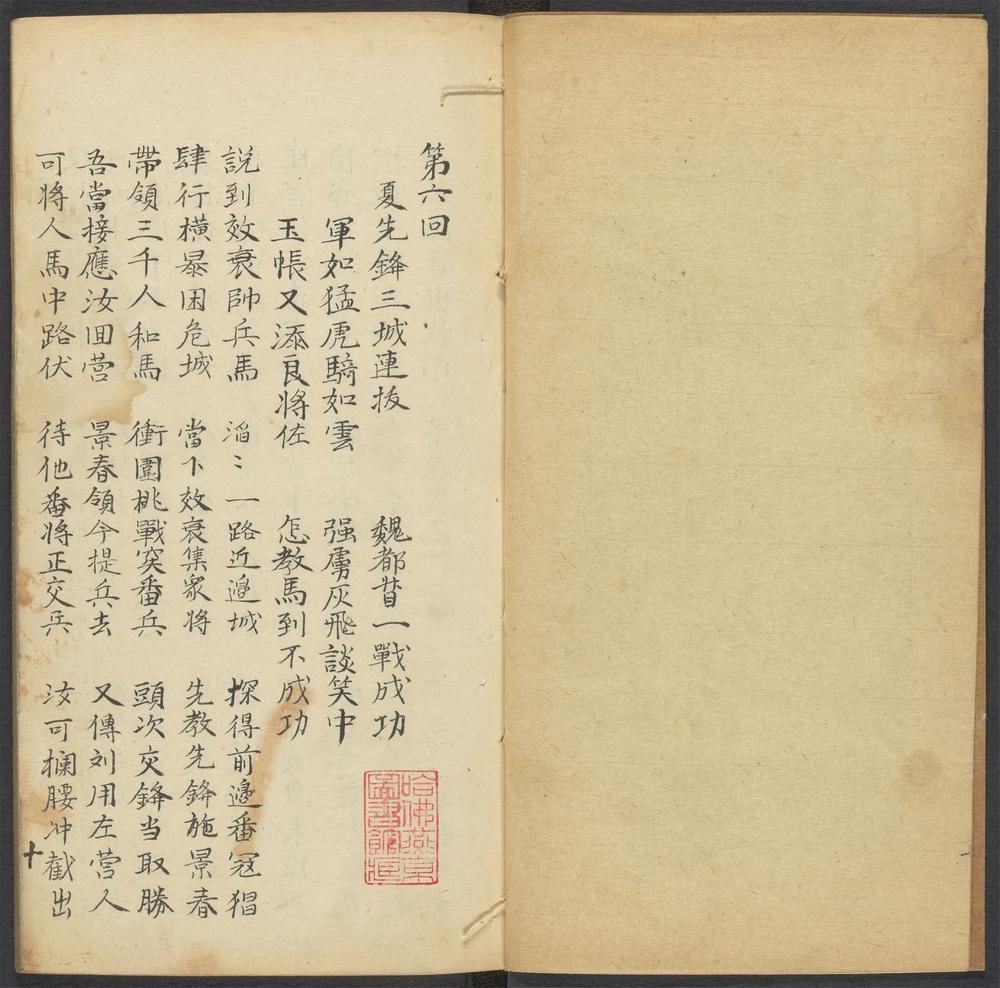 第六回
夏先鋒三城連拔 魏都督一戰成功
軍如猛虎騎如雲 强虜灰飛談笑中
玉帳又添良将佐 怎教馬到不成功
説到效衰帥兵馬 滔〻一路近邉城 探得前邉番冦猖
肆行横暴困危城 當下效衰集衆将 先教先鋒施景春
帶領三千人和馬 衝圍挑戰突番兵 頭次交鋒当取勝
吾當接應汝回营 景春領令提兵去 又傳刘用左营人
可将人馬中路伏 待他番将正交兵 汝可攔腰冲截出
哈佛燕京圖書館藏